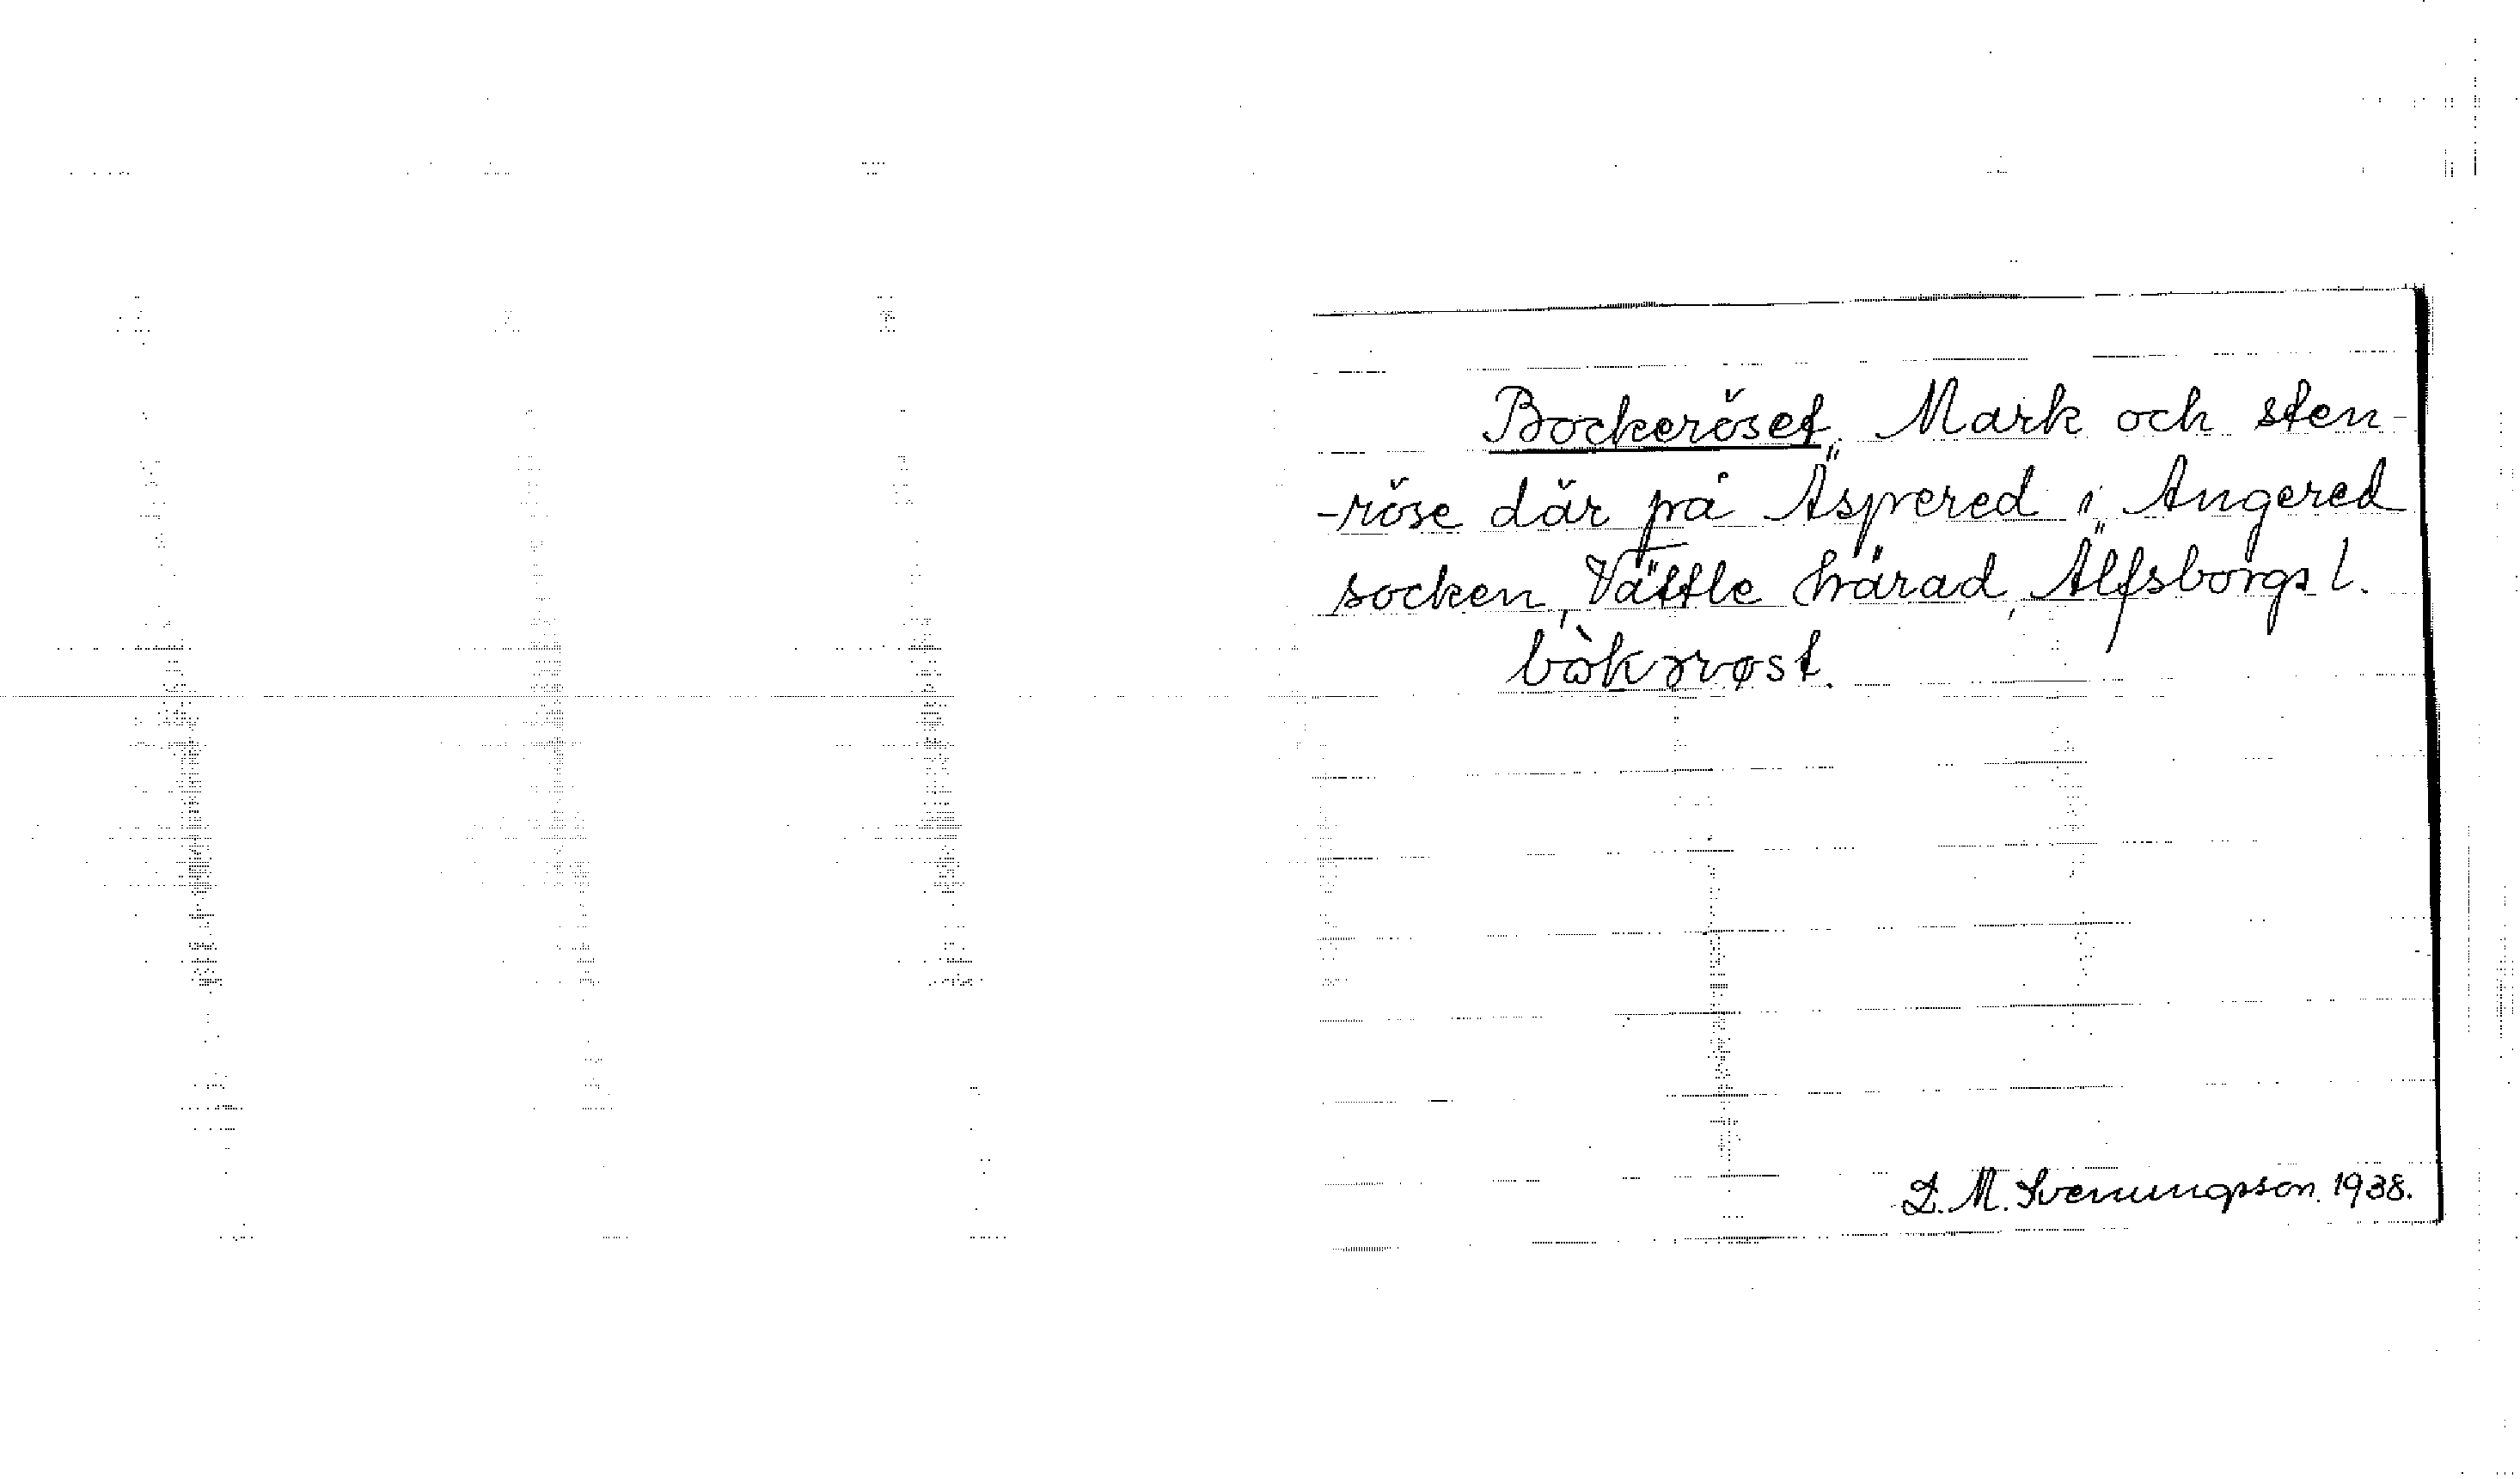 Bockeröset. Mark och sten-
-röse där på Äspered i Angered
socken, Vättle härad, Älfsborgs l.
bòkrøst.
D. M. Svenungsson. 1938.